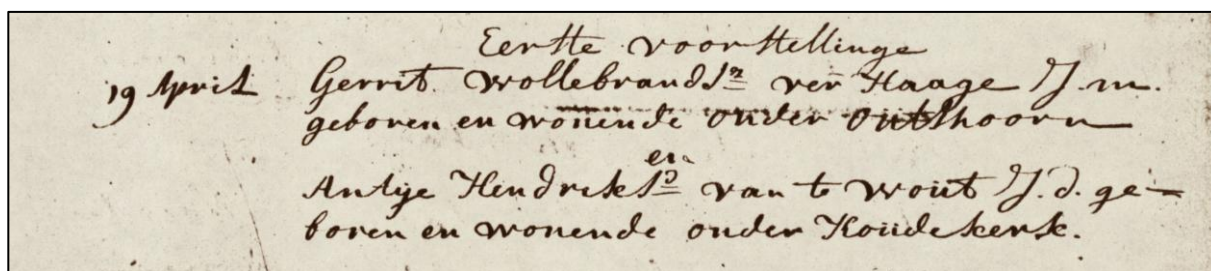 Eerste voorstellinge
19 April Gerrit Wollebrandsz ver Haage J.m.
geboren en wonende onder Outshoorn
en
Antje Hendriksd van t Wout J.d. ge-
boren en wonende onder Koudekerk.